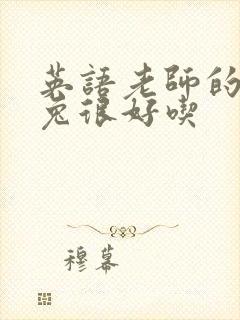 英語老師的
兔很好喫
穆幕